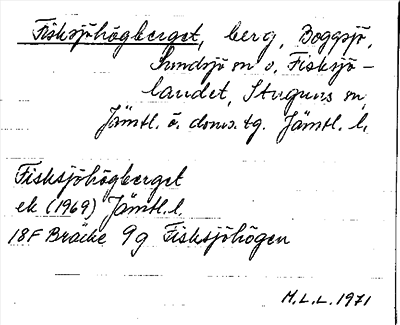 Fisksjöhögberget, berg, Boggsjö,
Sundsjö sn o. Fisksjö-
landet, Stuguns sn,
Jämtl. ö. doms. tg. Jämtl. l.
Fisksjöhögberget
ek (1969) Jämtl. l.
18F Bräcke 9g Fisksjöhögen
M.L.L. 1971